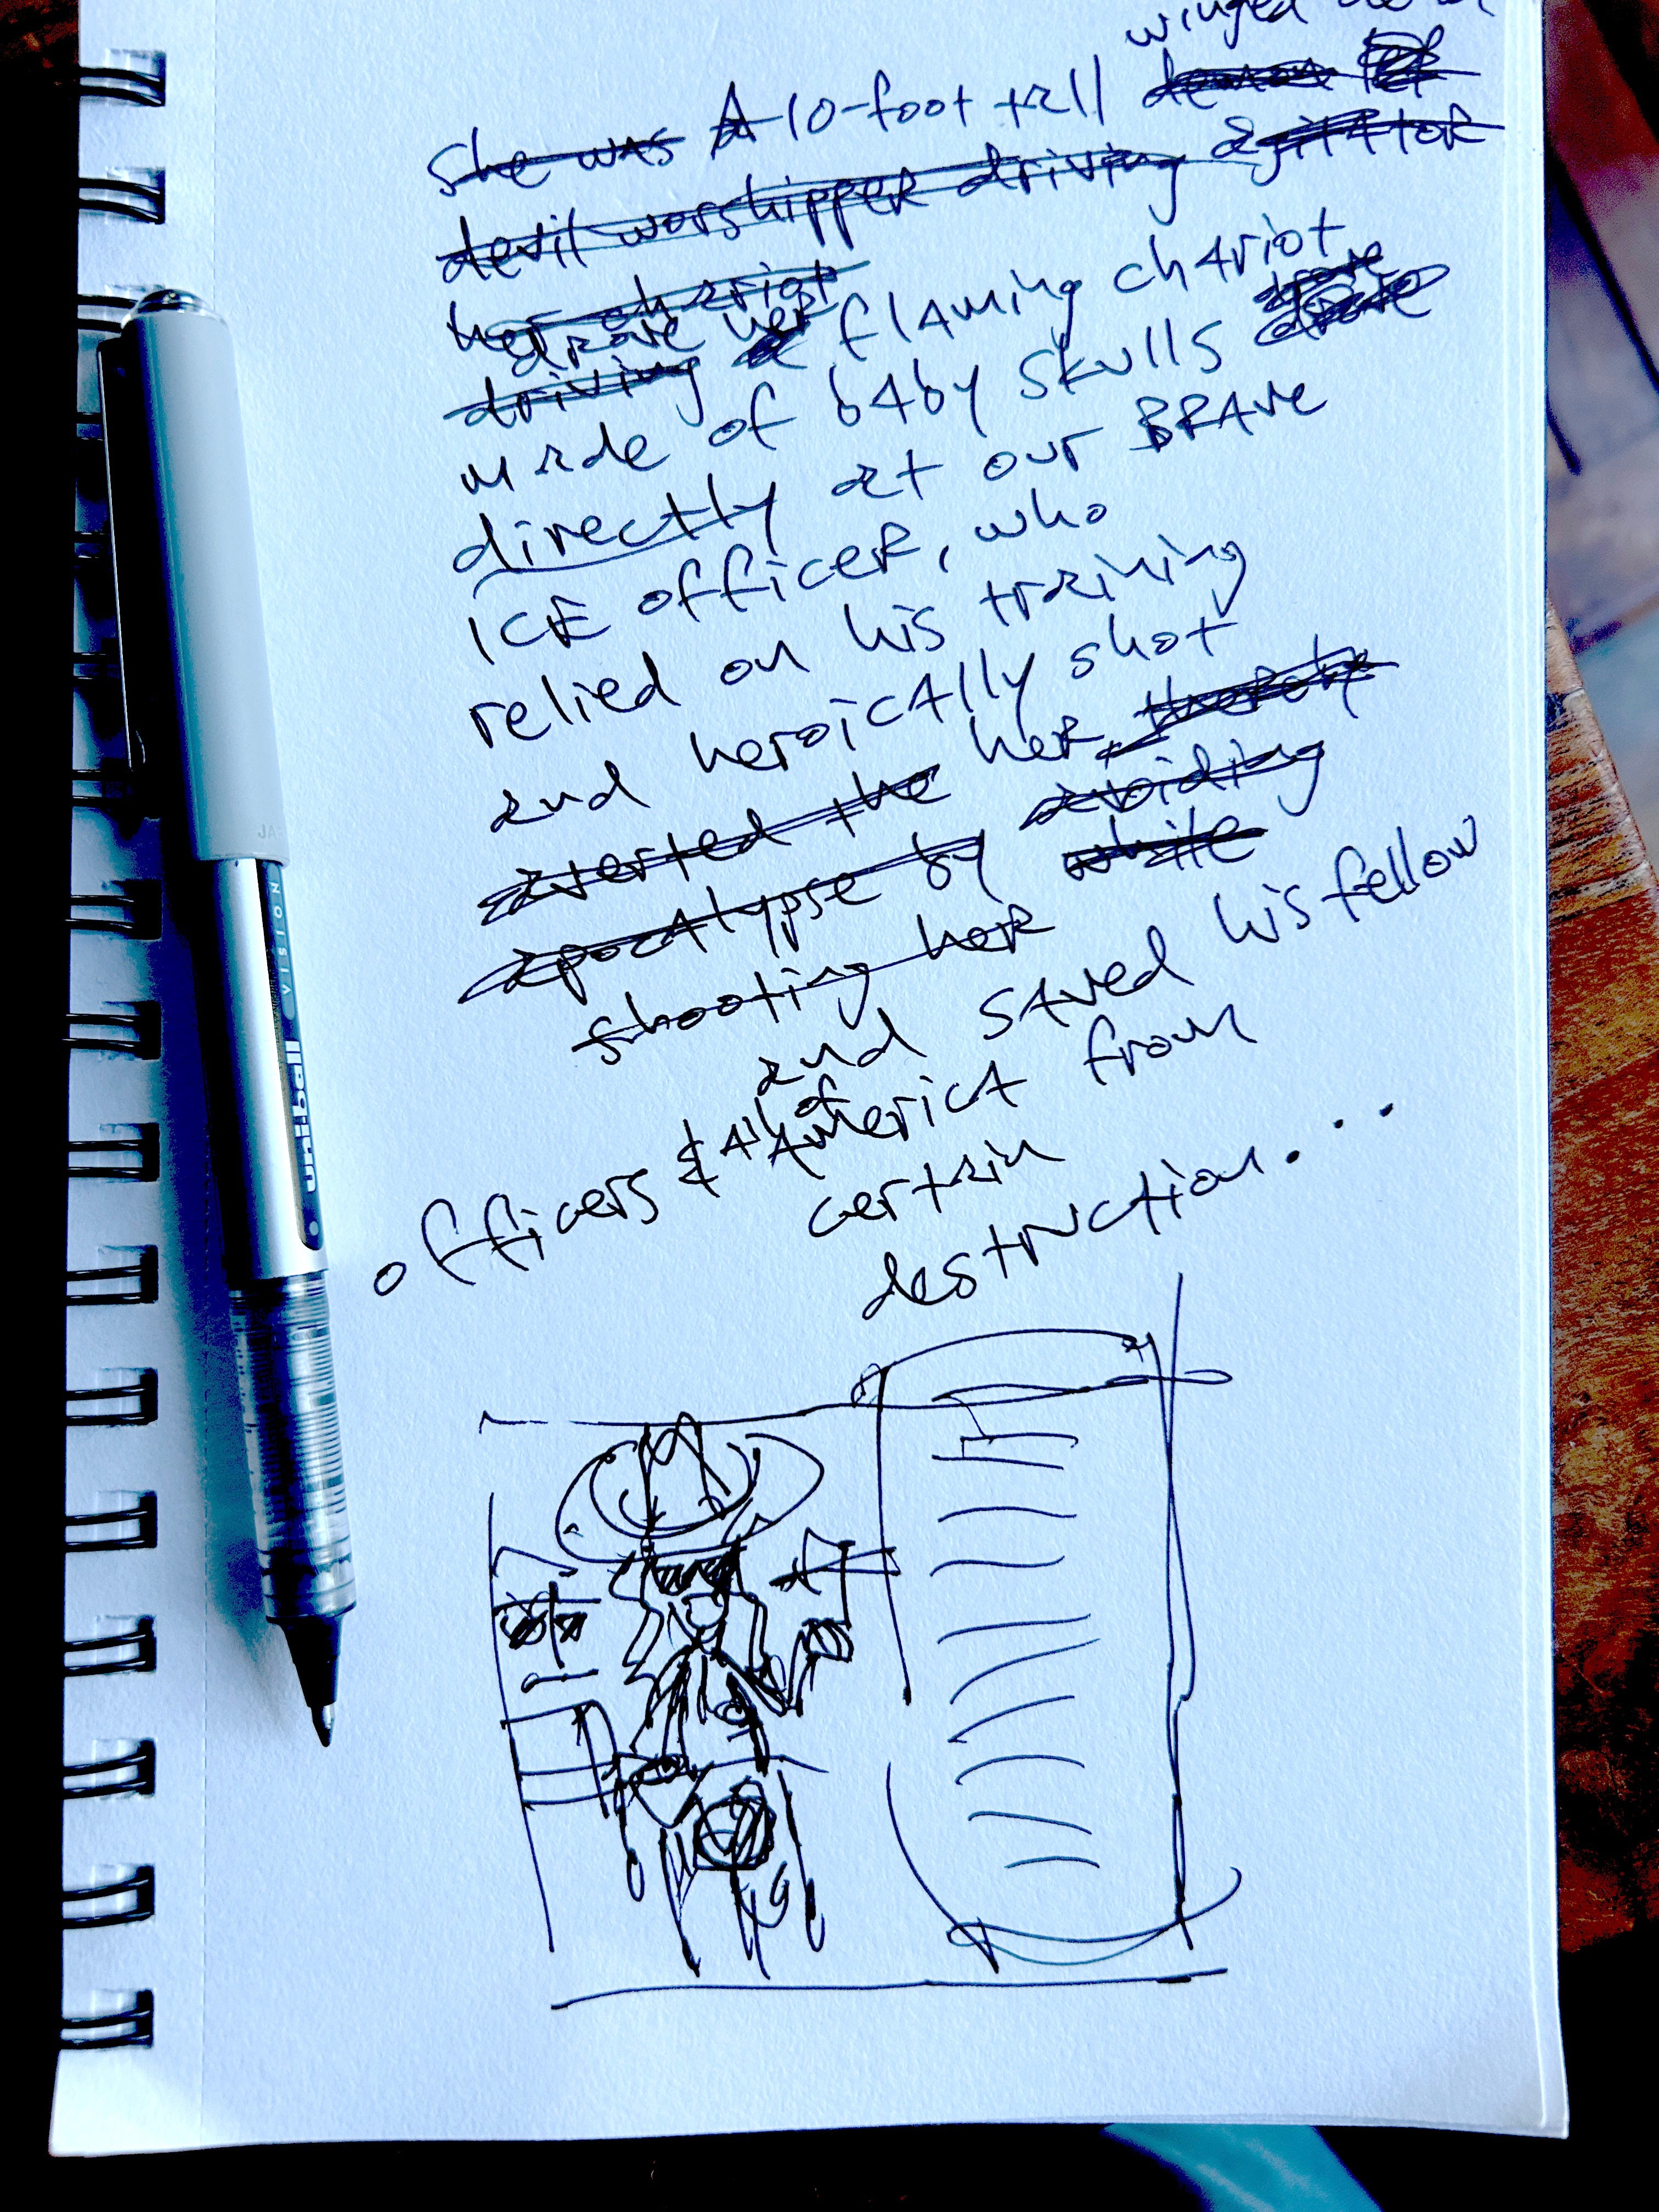 winged
She was A 10-foot tall demon
devil worshipper driving agitator
her chariot
drove her
driving a flaming chariot
made of baby skulls drove
directly at our BRAVE
ICE officer, who
relied on his training
and heroically shot
averted the her, thereby
apocalypse by avoiding
while
shooting her
and saved his fellow
officers & All of America from
certain
destruction....
uni-ball
VISION